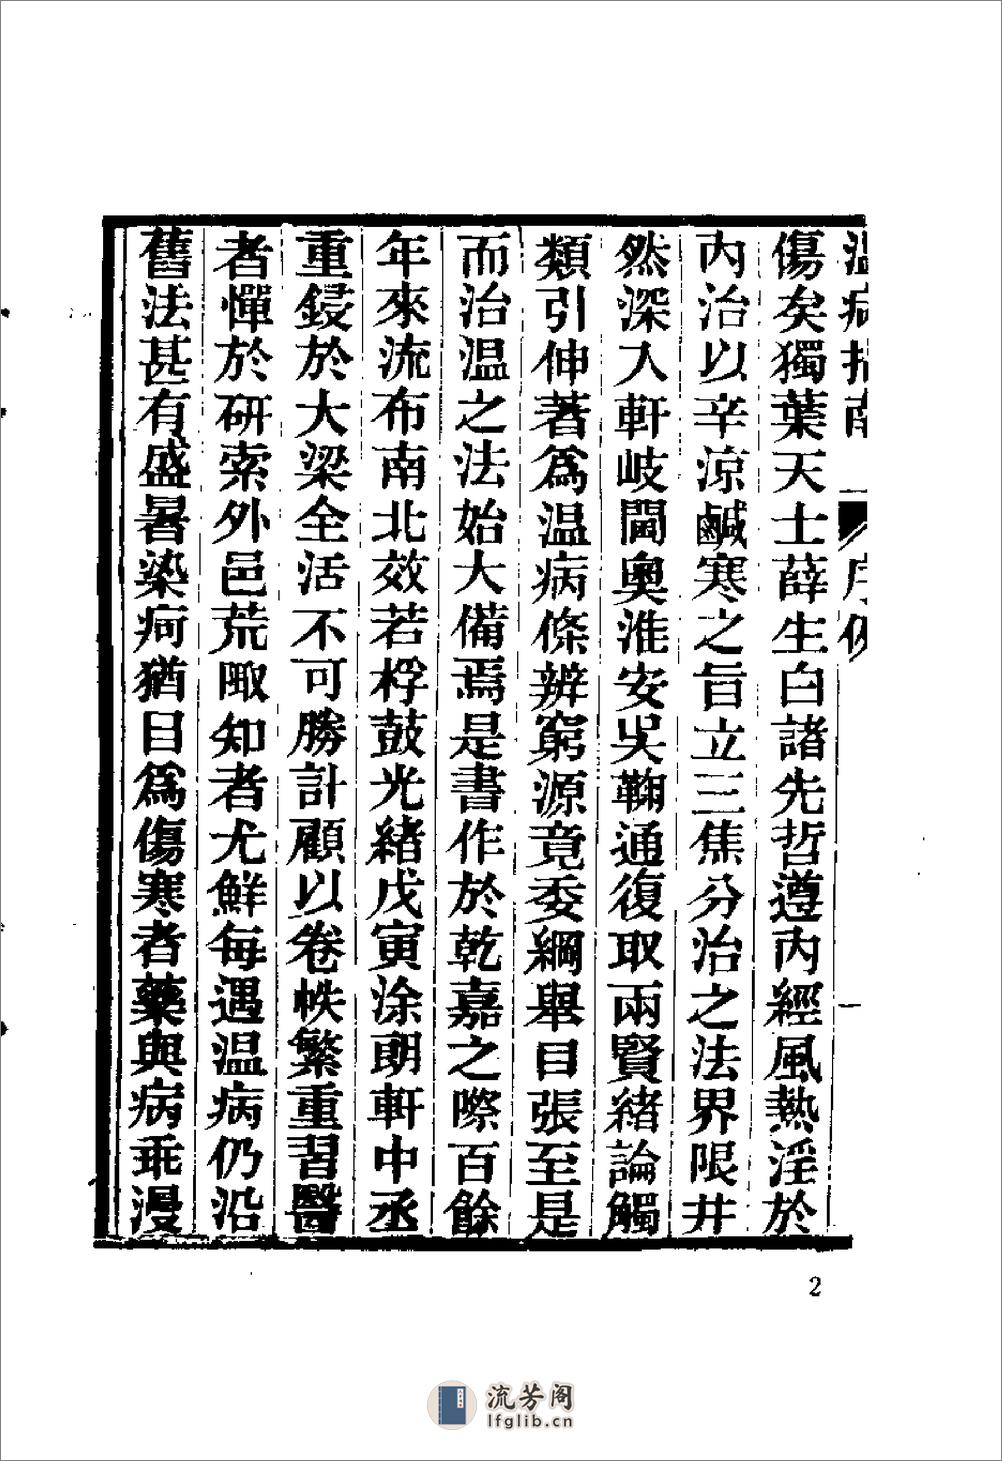 溫病指南 序例 一
傷矣獨葉天士薛生白諸先哲遵內經風熱淫於
內治以辛涼鹹寒之旨立三焦分治之法界限井
然深入軒岐閫奧淮安吳鞠通復取兩賢緒論觸
類引伸著爲温病條辨窮源竟委綱舉目張至是
而治温之法始大備焉是書作於乾嘉之際百餘
年來流布南北效若桴鼓光緒戊寅涂朗軒中丞
重鋟於大梁全活不可勝計顧以卷帙繁重習醫
者憚於研索外邑荒陬知者尤鮮每遇温病仍沿
舊法甚有盛暑染疴猶目爲傷寒者藥與病乖漫
2
流芳阁
lfglib.cn